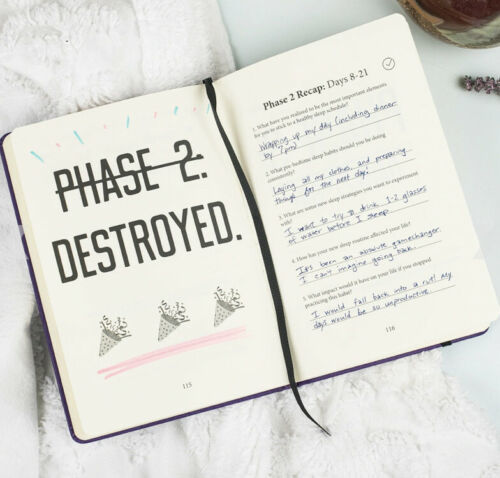 PHASE 2.
DESTROYED.
115
Phase 2 Recap: Days 8-21
1. What have you realized to be the most important elements
for you to stick to a healthy sleep schedule?
Wrapping up my day (including dinner
by 7pm)
2. What pre-bedtime sleep habits should you be doing
consistently?
Laying all my clothes, and preparing
things for the next day.
3. What are some new sleep strategies you want to experiment
with?
I want to try to drink 1-2 glasses
of water before I sleep.
4. How has your new sleep routine affected your life?
It's been an absolute gamechanger.
I can't imagine going back.
5. What impact would it have on your life if you stopped
practicing this habit?
I would fall back into a rut! My
days would be so unproductive.
116